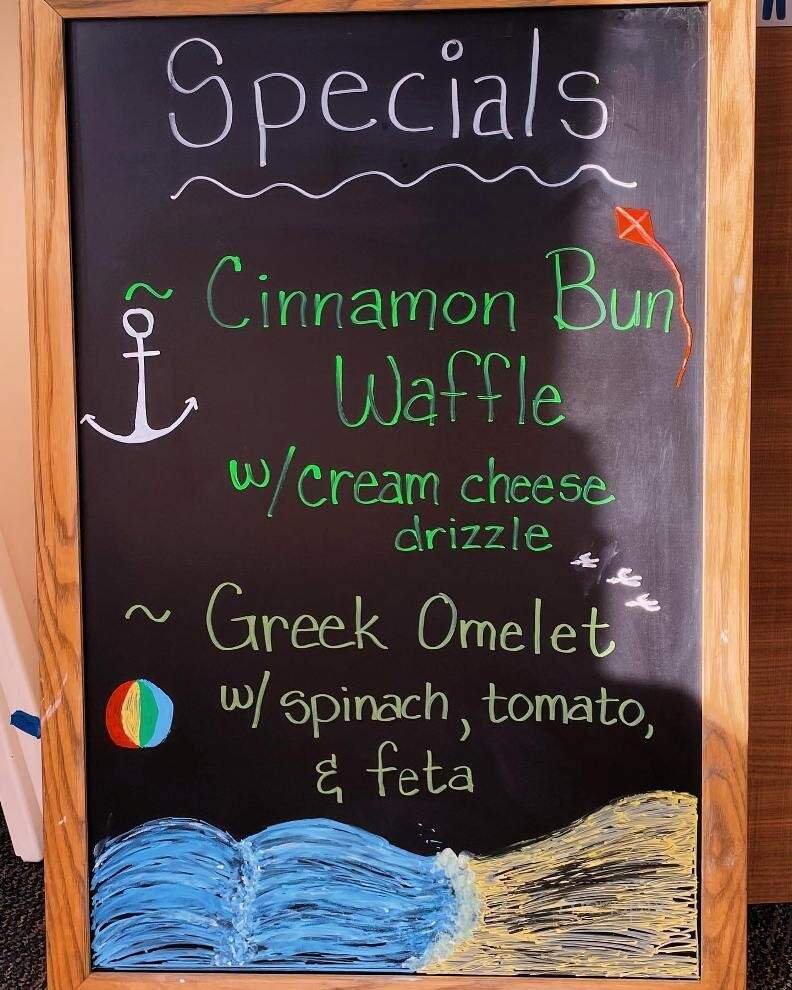 Specials
~ Cinnamon Bun
Waffle
w/cream cheese
drizzle
~ Greek Omelet
w/ spinach, tomato,
& feta